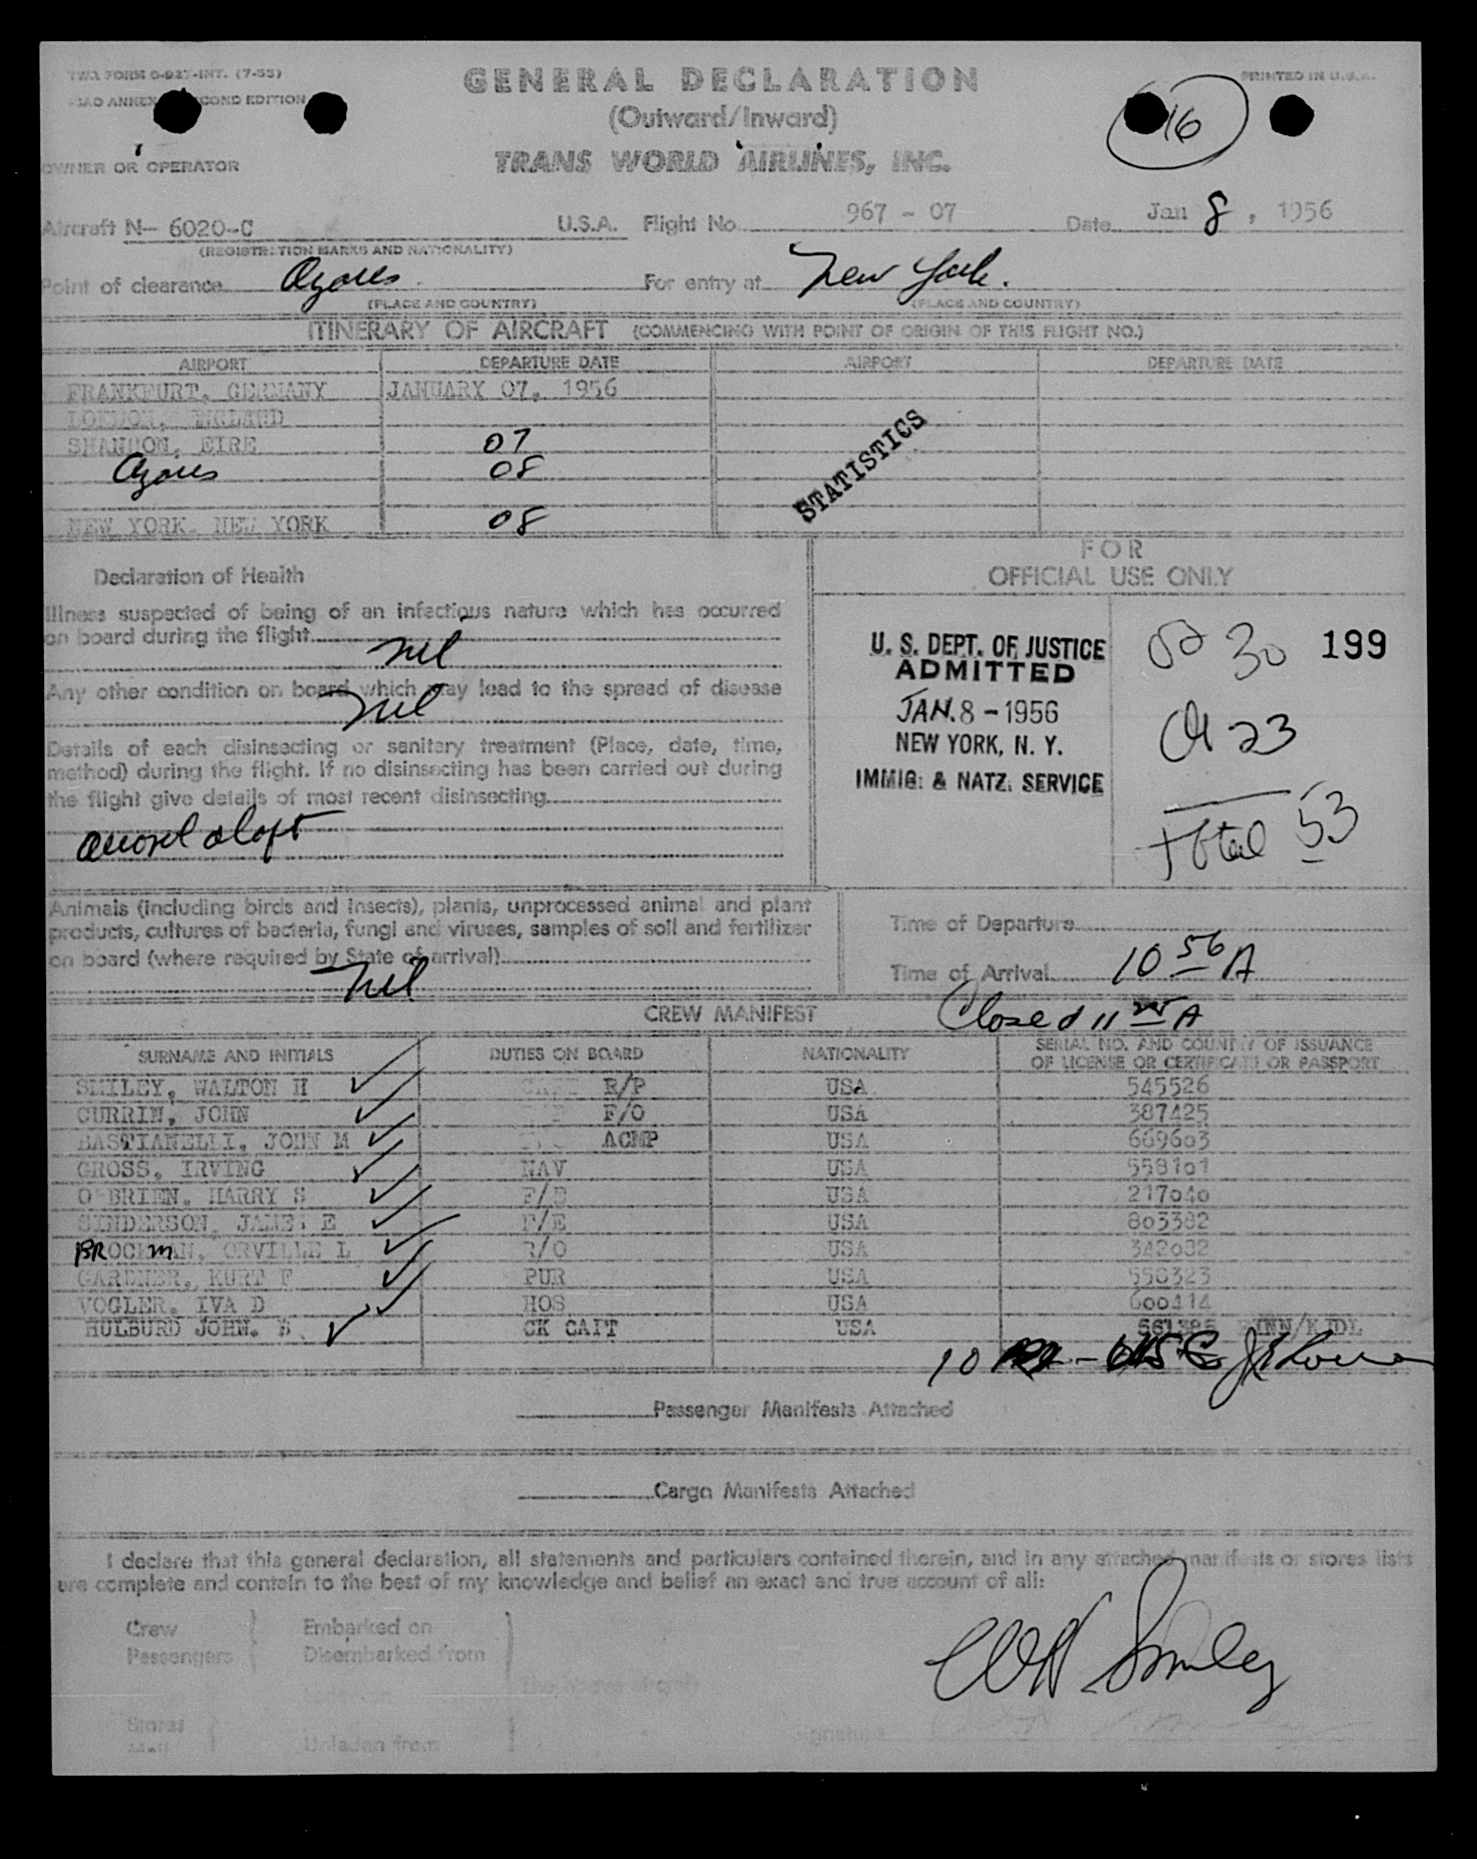 TWA FORM O-927-INT. (7-55)
GENERAL DECLARATION
PRINTED IN U.S.A.
ICAO ANNEX SECOND EDITION
(Outward/Inward)
16
OWNER OR OPERATOR
TRANS WORLD AIRLINES, INC.
Aircraft N- 6020-C U.S.A. Flight No. 967 - 07 Date Jan 8, 1956
(REGISTRATION MARKS AND NATIONALITY)
Point of clearance Azores. For entry at New York.
(PLACE AND COUNTRY) (PLACE AND COUNTRY)
ITINERARY OF AIRCRAFT (COMMENCING WITH POINT OF ORIGIN OF THIS FLIGHT NO.)
AIRPORT DEPARTURE DATE AIRPORT DEPARTURE DATE
FRANKFURT, GERMANY JANUARY 07, 1956
LONDON, ENGLAND
SHANNON, EIRE 07
Azores 08
STATISTICS
NEW YORK. NEW YORK 08
FOR
OFFICIAL USE ONLY
Declaration of Health
Illness suspected of being of an infectious nature which has occurred
on board during the flight
nil
Any other condition on board which may lead to the spread of disease
nil
Details of each disinsecting or sanitary treatment (Place, date, time,
method) during the flight. If no disinsecting has been carried out during
the flight give details of most recent disinsecting
aerosol aloft
U. S. DEPT. OF JUSTICE
ADMITTED
JAN. 8 - 1956
NEW YORK, N. Y.
IMMIG. & NATZ. SERVICE
30 199
23
Total 53
Animals (including birds and insects), plants, unprocessed animal and plant
products, cultures of bacteria, fungi and viruses, samples of soil and fertilizer
on board (where required by State of arrival)
nil
Time of Departure
Time of Arrival 10 56 A
Closed 11 A
CREW MANIFEST
SURNAME AND INITIALS DUTIES ON BOARD NATIONALITY SERIAL NO. AND COUNTRY OF ISSUANCE
OF LICENSE OR CERTIFICATE OR PASSPORT
SMILEY, WALTON H R/P USA 545526
CURRIN, JOHN F/O USA 387425
BASTIANELLI, JOHN M ACMP USA 669603
GROSS, IRVING NAV USA 558101
O'BRIEN, HARRY S F/E USA 217040
SENDERSON, JAMES E F/E USA 803382
BROCKMAN, ORVILLE L R/O USA 342082
GARDNER, KURT F PUR USA 558323
VOGLER, IVA D HOS USA 600414
HULBURD JOHN. CK CAPT USA 561385
10
Passenger Manifests Attached
Cargo Manifests Attached
I declare that this general declaration, all statements and particulars contained therein, and in any attached manifests or stores lists
are complete and contain to the best of my knowledge and belief an exact and true account of all:
Crew Embarked on
Passengers Disembarked from
Stores
Mail Unladen from
Signature
WH Smiley